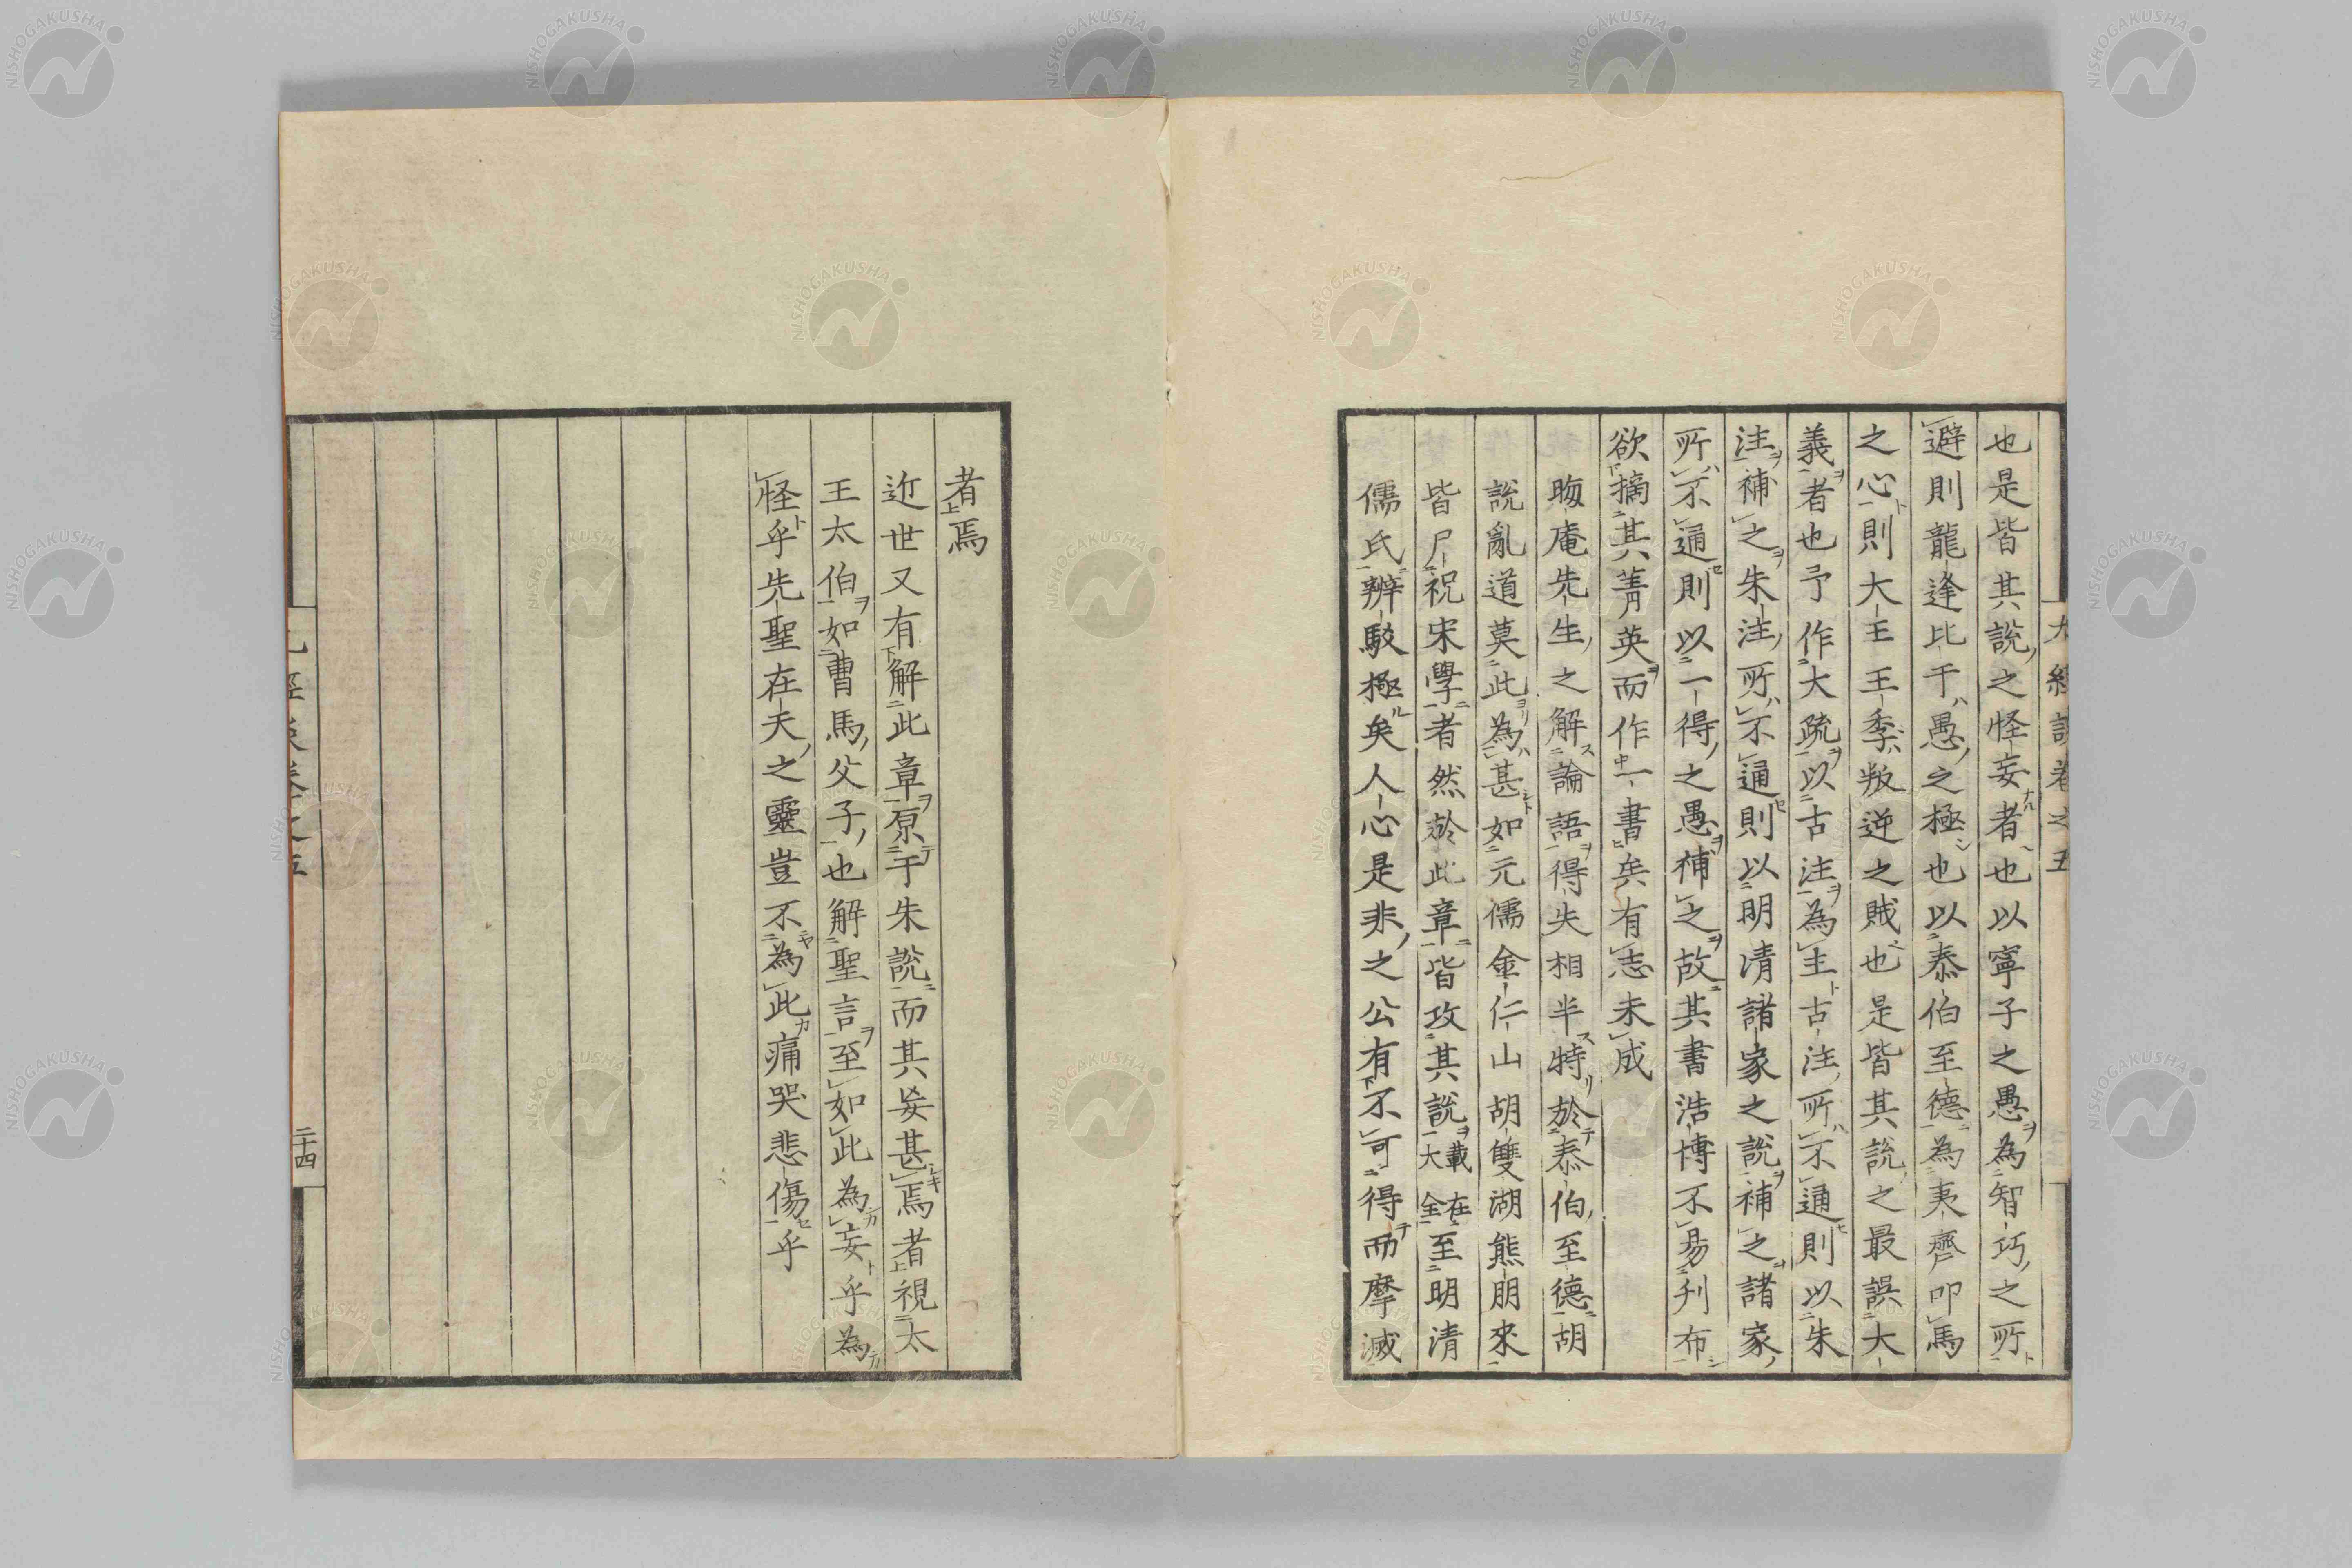 也是皆其說之怪妄者也以寧子之愚為智巧之所
避則龍逢比干愚之極也以泰伯至德為夷齊叩馬
之心則大王王季叛逆之賊也是皆其說之最誤大
義者也予作大疏以古注為主古注所不通則以朱
注補之朱注所不通則以明清諸家之說補之諸家
所不通則以一得之愚補之故其書浩博不易刊布
欲摘其菁英而作一書矣有志未成
晦庵先生之解論語得失相半特於泰伯至德胡
說亂道莫此為甚如元儒金仁山胡雙湖熊朋來
皆尸祝宋學者然於此章皆攻其說載在大全至明清
儒氏辨駁極矣人心是非之公有不可得而摩滅
者焉
近世又有解此章原于朱說而其妄甚焉者視太
王太伯如曹馬父子也解聖言至如此為妄乎為
怪乎先聖在天之靈豈不為此痛哭悲傷乎
二十四
NISHOGAKUSHA